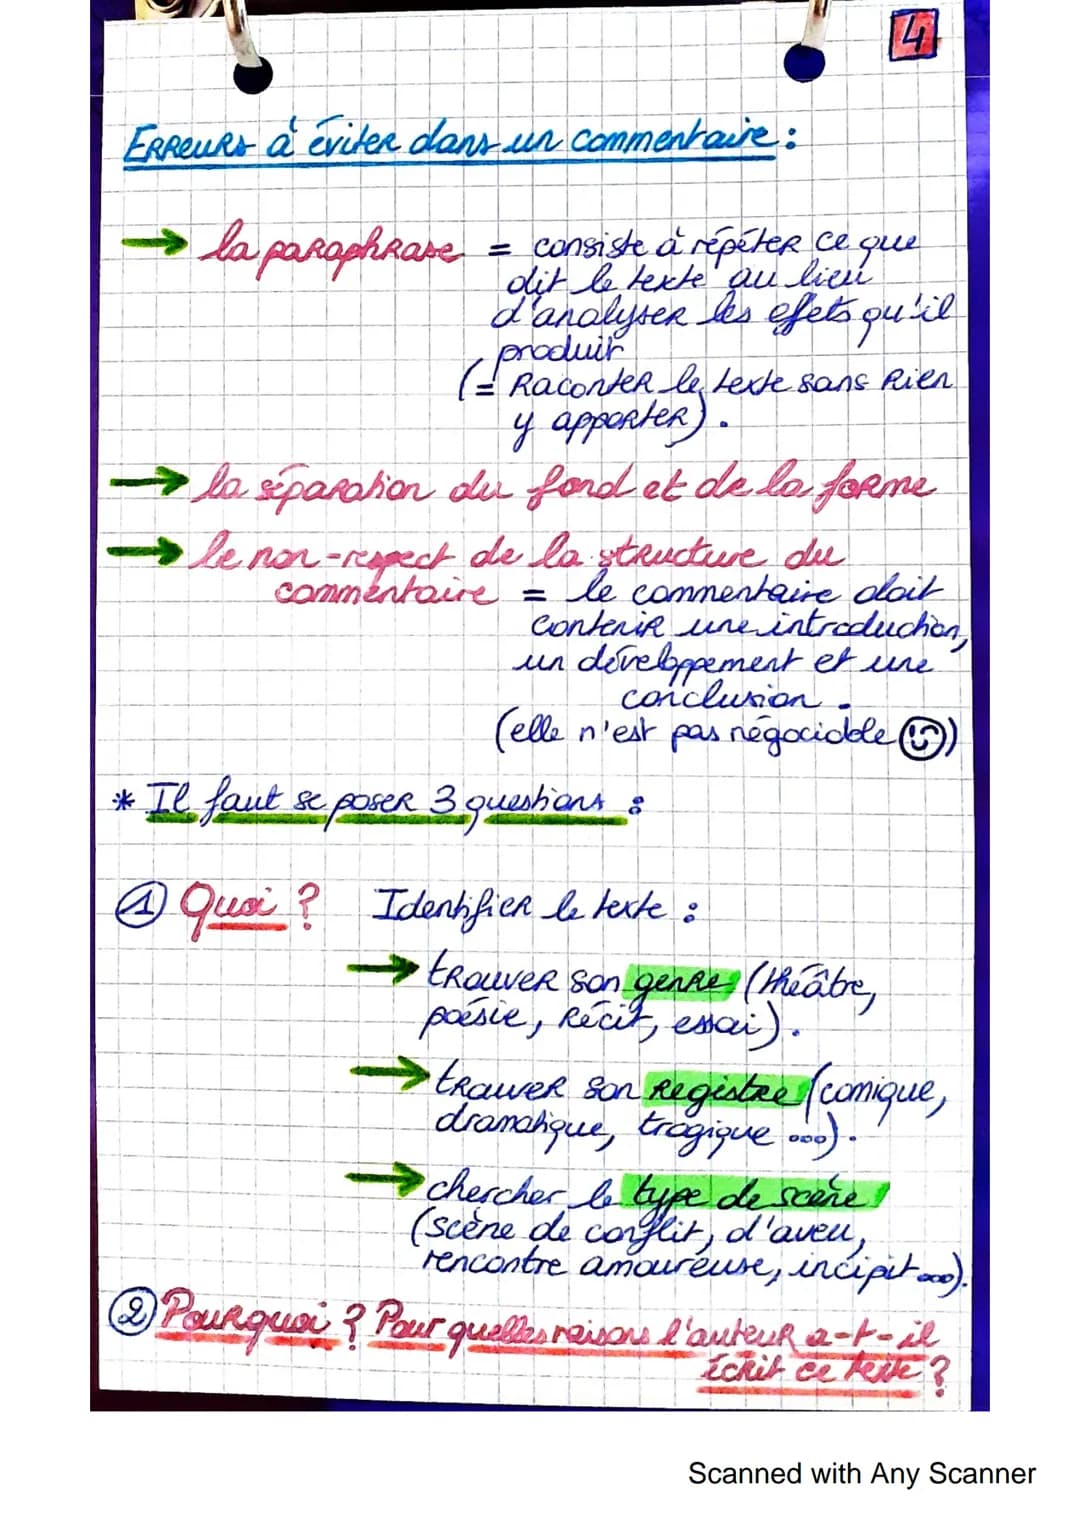 4
Erreurs à éviter dans un commentaire :
→ la paraphrase = consiste à répéter ce que
dit le texte au lieu
d'analyser les efets qu'il
produit
(= Raconter le texte sans Rien
y apporter).
→ la séparation du fond et de la forme
→ le non-respect de la structure du
commentaire = le commentaire doit
contenir une introduction,
un développement et une
conclusion.
(elle n'est pas négociable)
* Il faut se poser 3 questions :
① Quoi ? Identifier le texte :
→ trouver son genre (théâtre,
poésie, Récit, essai).
→ trouver son Registre (comique,
dramatique, tragique ...).
→ chercher le type de scène
(scène de conflit, d'aveu,
rencontre amoureuse, incipit...).
② Pourquoi ? Pour quelles raisons l'auteur a-t-il
écrit ce texte ?
Scanned with Any Scanner